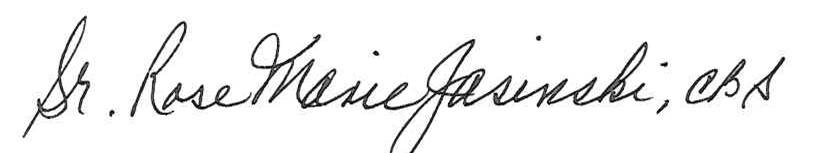 Sr. Rose Marie Jasinski, CBS